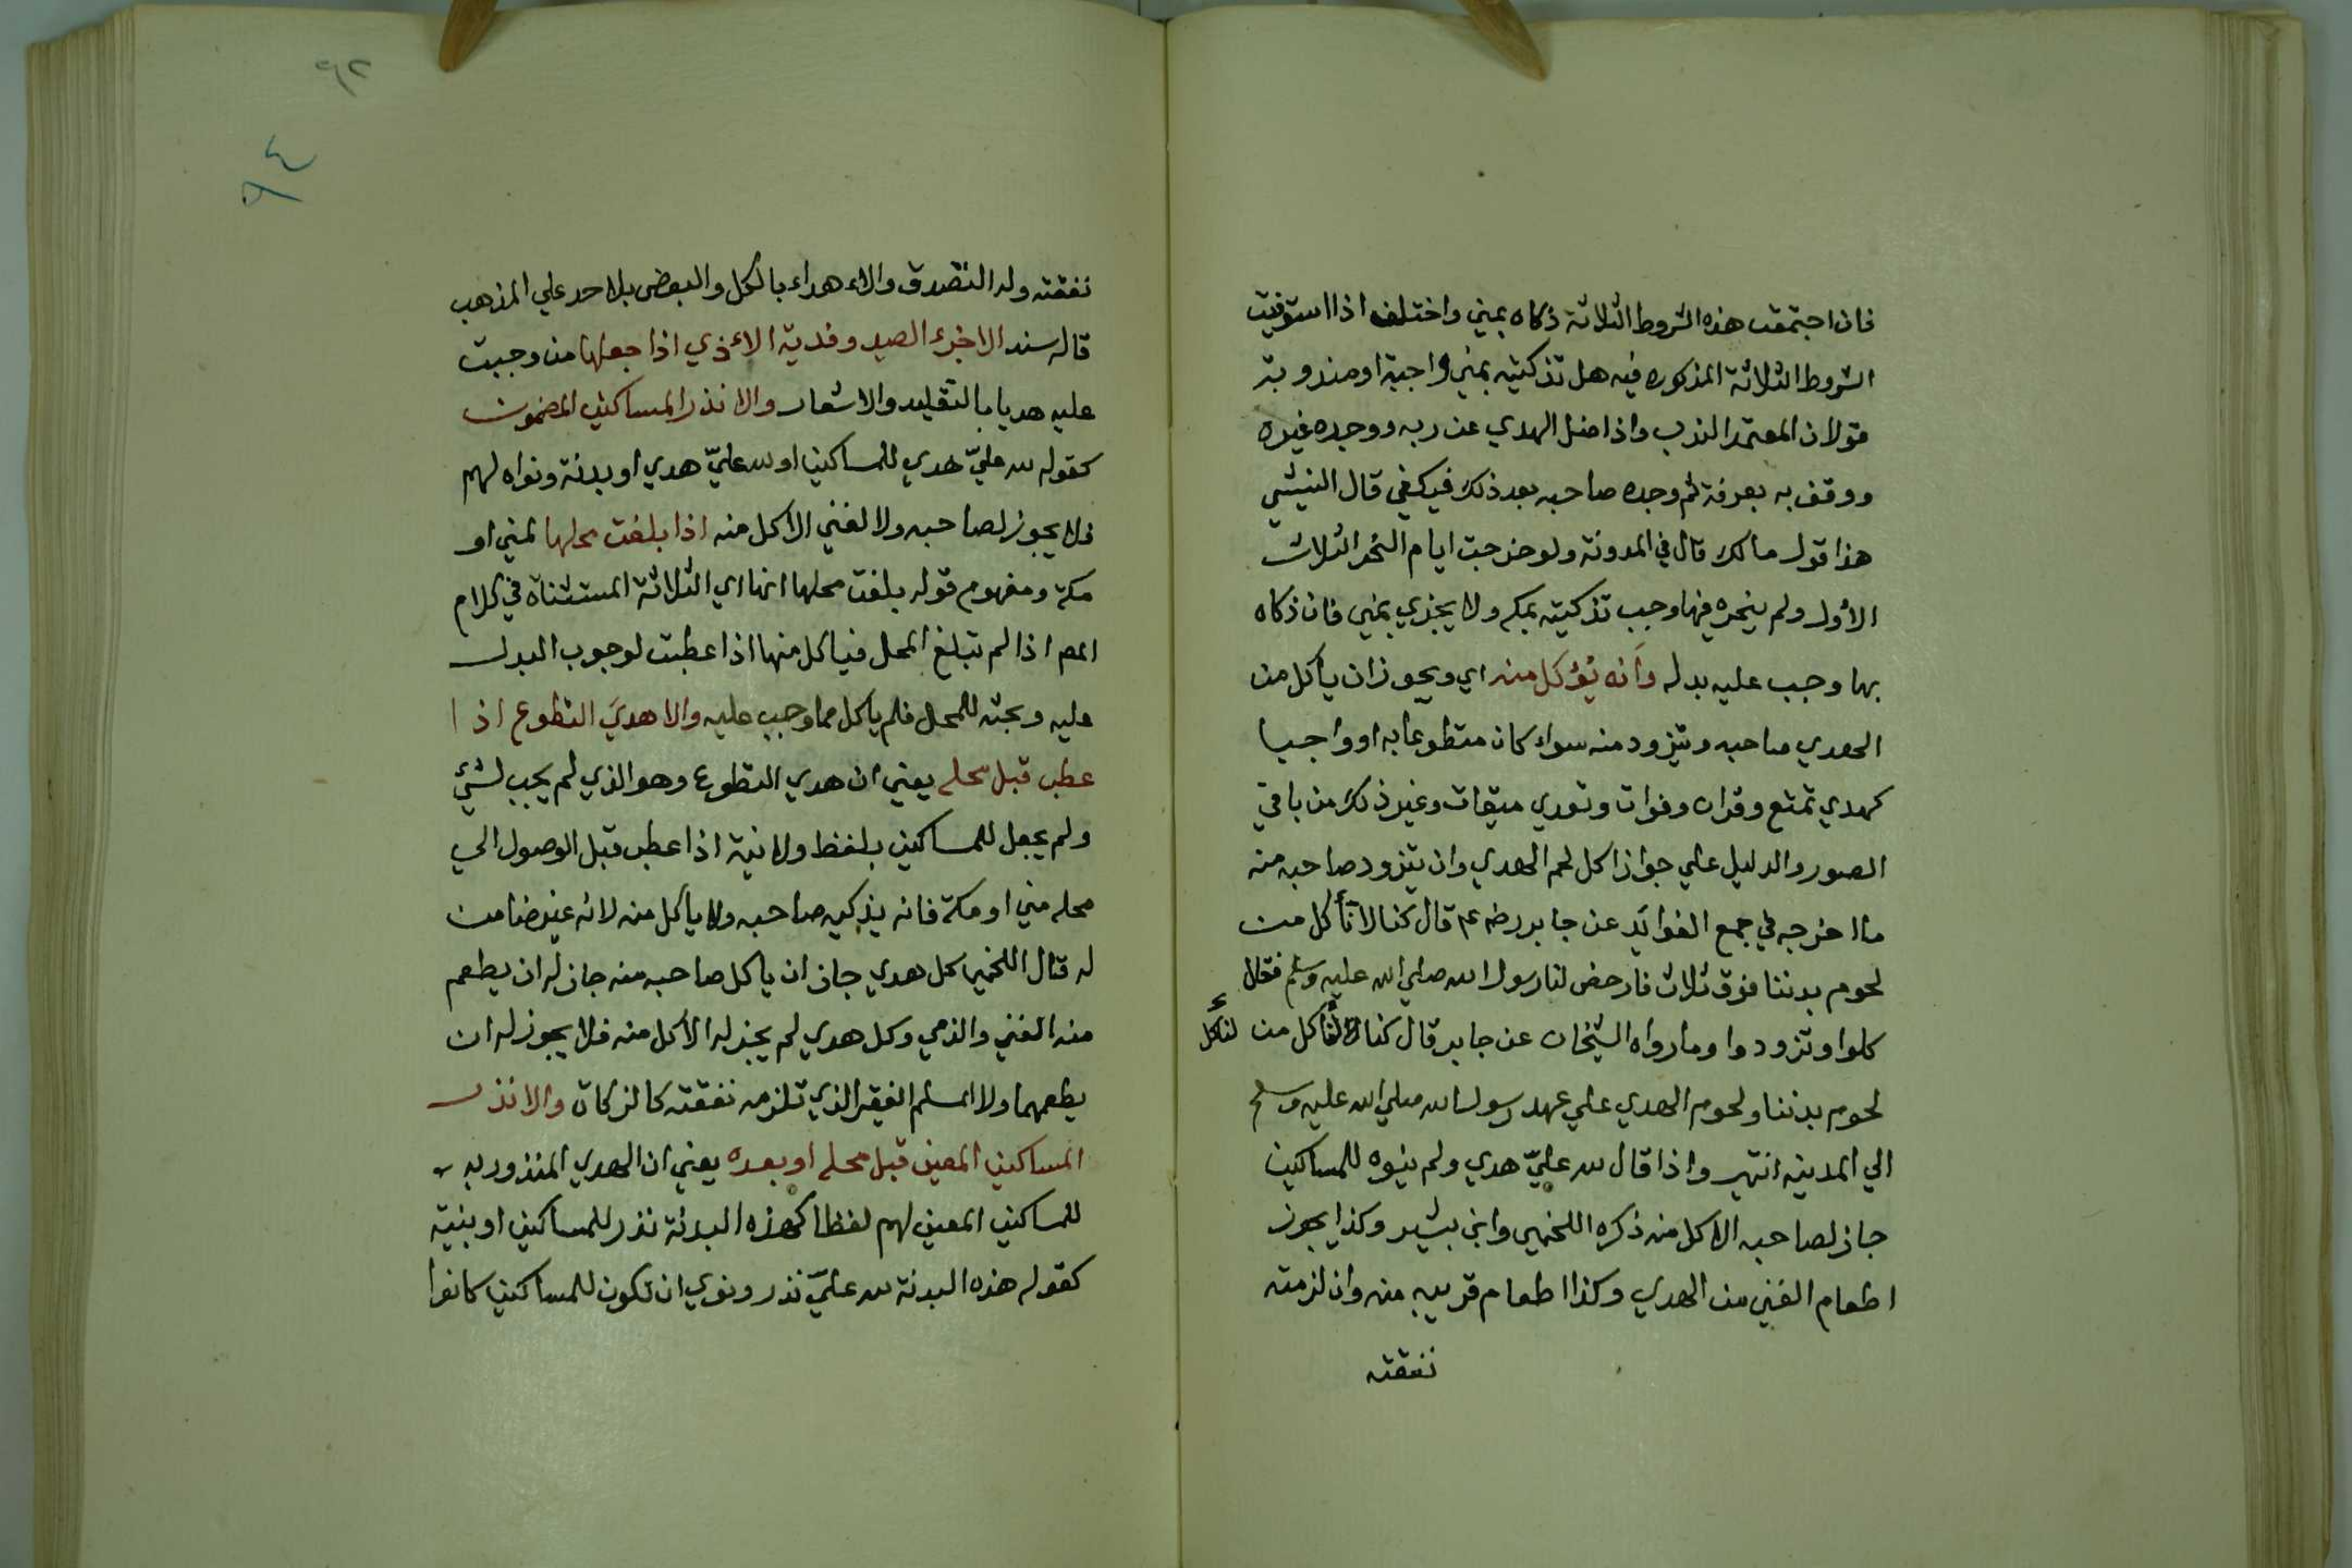 فان اجتمعت هذه الشروط الثلاثة ذكاه بمني واختلف اذا استوفيت
الشروط الثلاثة المذكوره فيه هل تذكيته بمني واجبة او مندوبة
قولان المعتمد الندب واذا ضل الهدي عن ربه ووجده غيره
ووقف به بعرفة ثم وجده صاحبه بعد ذلك فيكفي قال
هذا قول مالك قال في المدونة ولو خرجت ايام النحر الثلاث
الأول ولم ينحره فيها وجب تذكيته بمكه ولا يجزي بمني فان ذكاه
بها وجب عليه بدله وأنه يُؤكل منه اي ويجوز ان يأكل من
الهدي صاحبه ويتزود منه سواء كان متطوعا به او واجبا
كهدي تمتع وقران وفوات وتعدي ميقات وغير ذلك من باقي
الصور والدليل علي جواز اكل لحم الهدي وان يتزود صاحبه منه
ما اخرجه في جمع الفوائد عن جابر رضه عـ قال كنا لا نأكل من
لحوم بدننا فوق ثلاث فارخص لنا رسول الله صلي الله عليه وسلم فقال
كلوا وتزودوا وما رواه الشيخان عن جابر قال كنا لنأكل من
لنأكل
لحوم بدننا ولحوم الهدي علي عهد رسول الله صلي الله عليه وسلم
الي المدينه انتهي واذا قال لله عليّ هدي ولم ينوه للمساكين
جاز لصاحبه الاكل منه ذكره اللخمي وابن بشير وكذا يجوز
اطعام الغني من الهدي وكذا اطعام قريبه منه وان لزمته
نفقته
٩٣
٩٤
نفقته وله التصدق والاهداء بالكل والبعض بلا حد علي المذهب
قاله سند الا جزء الصيد وفدية الاءذي اذا جعلها من وجبت
عليه هديا بالتقليد والاشعار والا نذر المساكين المضمون
كقوله لله عليّ هدي للمساكين او لله عليّ هدي او بدنة ونواه لهم
فلا يجوز لصاحبه ولا لغني الاكل منه اذا بلغت محلها لمني او
مكة ومفهوم قوله بلغت محلها انها اي الثلاثة المستثناة في كلام
المص اذا لم تبلغ المحل فياكل منها اذا عطبت لوجوب البدل
عليه وبعثه للمحل فلم ياكل مما وجب عليه والا هديَ التطوع اذا
عطب قبل محله يعني ان هدي التطوع وهو الذي لم يجب لشيء
ولم يجعل للمساكين بلفظ ولا نية اذا عطب قبل الوصول الي
محله مني او مكة فانه يذكيه صاحبه ولا ياكل منه لانه غير ضامن
له قال اللخمي كل هدي جاز ان ياكل صاحبه منه جاز له ان يطعم
منه الغني والذمي وكل هدي لم يجز له الاكل منه فلا يجوز له ان
يطعمهما ولا المسلم الفقير الذي تلزمه نفقته كالزكاة والا نذر
المساكين المعين قبل محله او بعده يعني ان الهدي المنذور به
للمساكين المعين لهم لفظا كهذه البدنة نذر للمساكين او بنية
كقوله هذه البدنة لله عليّ نذر ونوي ان تكون للمساكين كانوا